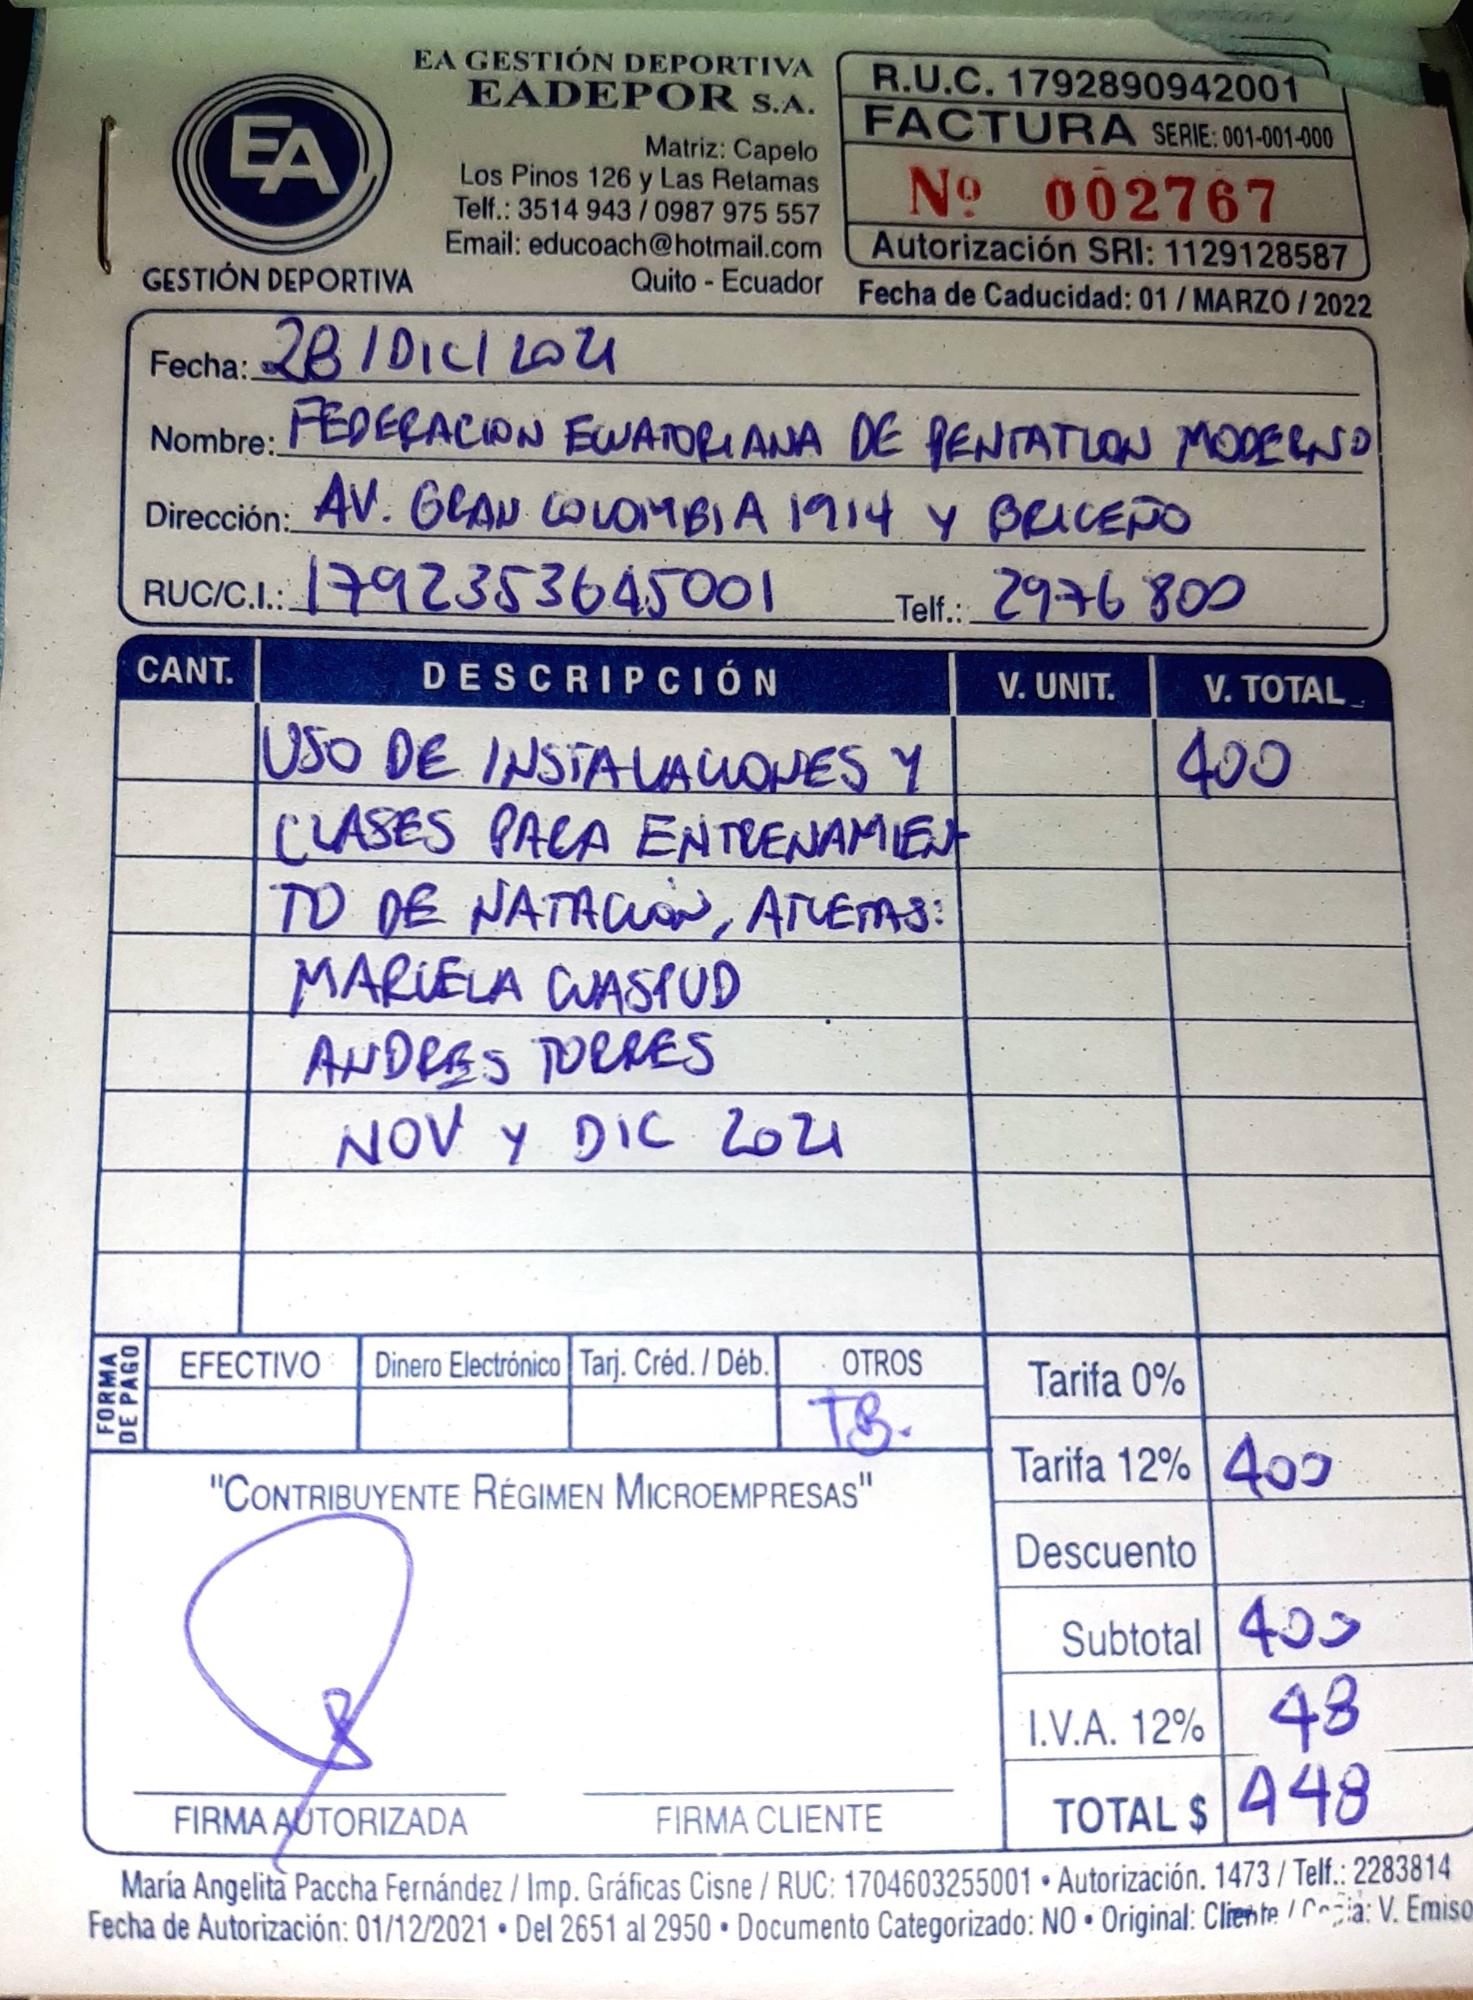 EA GESTIÓN DEPORTIVA
EADEPOR S.A.
EA
GESTIÓN DEPORTIVA
Matriz: Capelo
Los Pinos 126 y Las Retamas
Telf.: 3514 943 / 0987 975 557
Email: educoach@hotmail.com
Quito - Ecuador
R.U.C. 1792890942001
FACTURA SERIE: 001-001-000
Nº 002767
Autorización SRI: 1129128587
Fecha de Caducidad: 01 / MARZO / 2022
Fecha: 28 / DIC / 2021
Nombre: FEDERACION ECUATORIANA DE PENTATLON MODERNO
Dirección: AV. GRAN COLOMBIA 1914 Y BRICEÑO
RUC/C.I.: 1792353645001 Telf.: 2976 800
CANT. DESCRIPCIÓN V. UNIT. V. TOTAL
USO DE INSTALACIONES Y 400
CLASES PARA ENTRENAMIEN
TO DE NATACIÓN, ATLETAS:
MARCELA CUASPUD
ANDRES TORRES
NOV Y DIC 2021
FORMA DE PAGO
EFECTIVO Dinero Electrónico Tarj. Créd. / Déb. OTROS
TB.
Tarifa 0%
Tarifa 12% 400
Descuento
Subtotal 400
I.V.A. 12% 48
TOTAL $ 448
"CONTRIBUYENTE RÉGIMEN MICROEMPRESAS"
FIRMA AUTORIZADA FIRMA CLIENTE
María Angelita Paccha Fernández / Imp. Gráficas Cisne / RUC: 1704603255001 • Autorización. 1473 / Telf.: 2283814
Fecha de Autorización: 01/12/2021 • Del 2651 al 2950 • Documento Categorizado: NO • Original: Cliente / Copia: V. Emiso